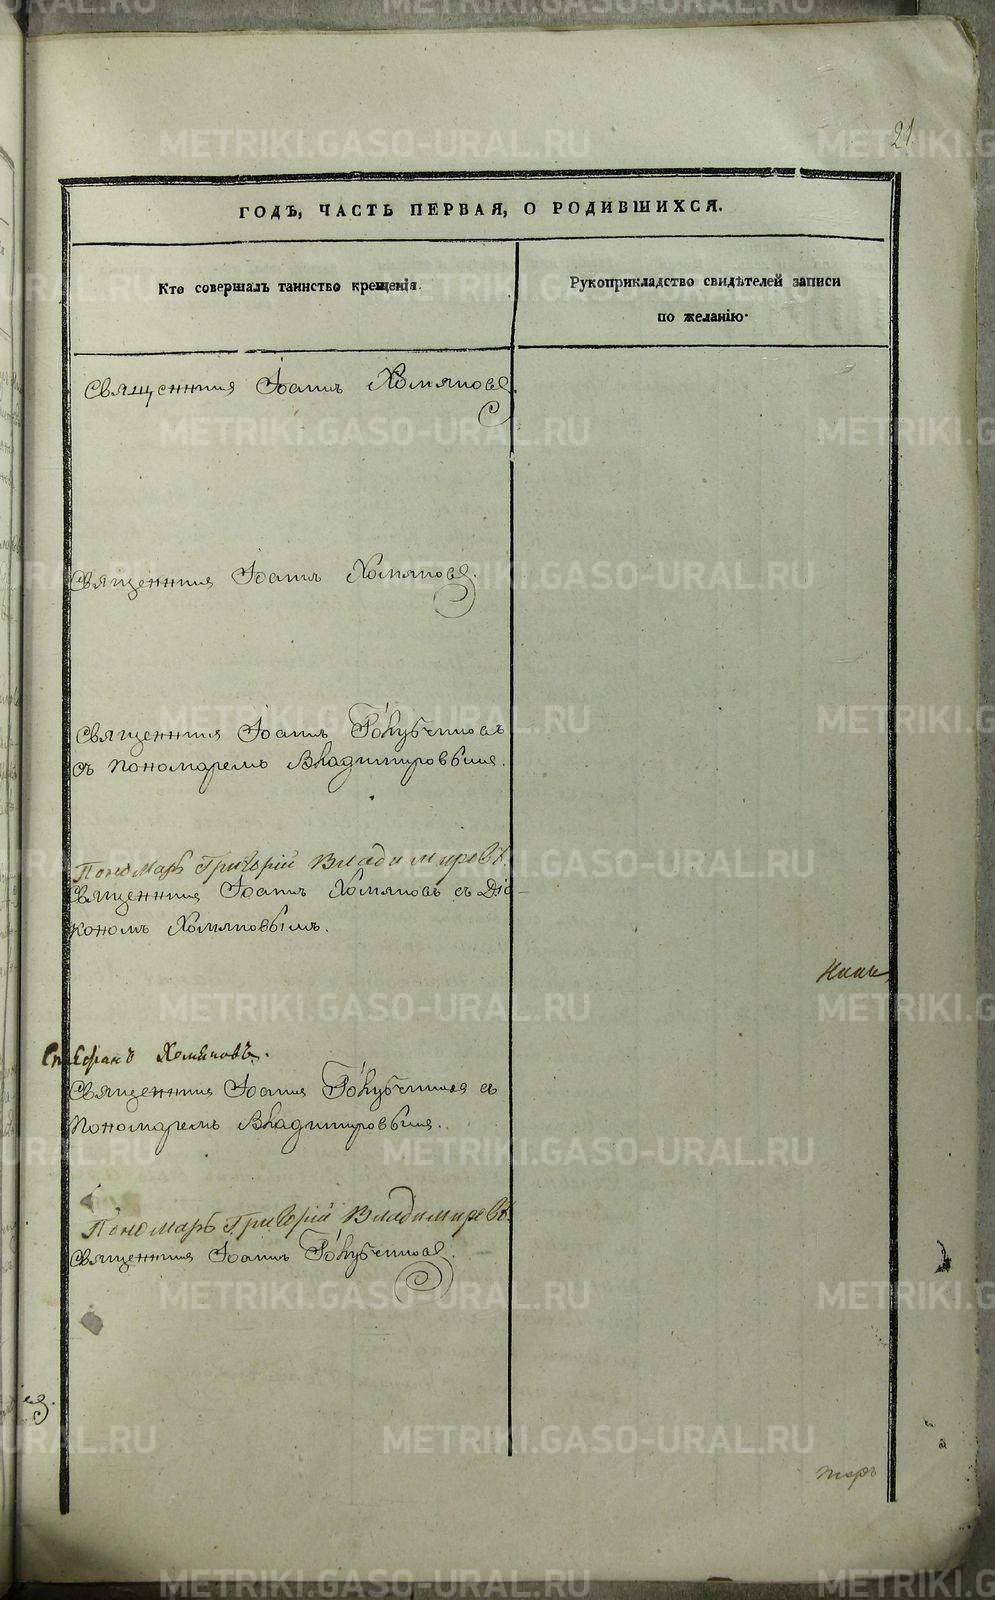 21
ГОДЪ, ЧАСТЬ ПЕРВАЯ, О РОДИВШИХСЯ.
Кто совершалъ таинство крещенія.
Рукоприкладство свидѣтелей записи
по желанію.
Священникъ Іоаннъ Хомяковъ.
Священникъ Іоаннъ Хомяковъ.
Священникъ Іоаннъ Голубчиковъ
съ Пономаремъ Владимировымъ.
Пономарь Григорій Владимировъ.
Священникъ Іоаннъ Хомяковъ съ Діа-
кономъ Хомяковымъ.
Стефанъ Хомяковъ.
Священникъ Іоаннъ Голубчиковъ съ
Пономаремъ Владимировымъ.
Пономарь Григорій Владимировъ.
Священникъ Іоаннъ Голубчиковъ.
METRIKI.GASO-URAL.RU